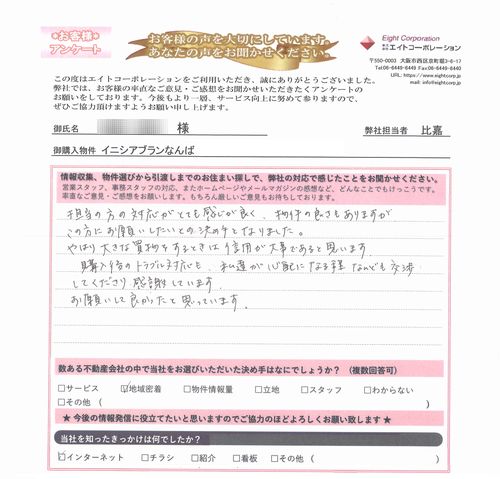 お客様
アンケート
お客様の声を大切にしています。
あなたの声をお聞かせください。
Eight Corporation
株式会社エイトコーポレーション
〒550-0003 大阪市西区京町堀3-6-17
Tel 06-6449-4449 Fax 06-6449-4489
URL: https://www.eightcorp.jp
mail: info@eightcorp.jp
この度はエイトコーポレーションをご利用いただき、誠にありがとうございました。
弊社では、お客様の率直なご意見・ご感想をお聞かせいただきたくアンケートの
お願いをしております。今後もより一層、サービス向上に努めて参りますので、
ぜひご協力頂けますようお願い申し上げます。
御氏名 様 弊社担当者 比嘉
御購入物件 イニシアブランなんば
情報収集、物件選びから引渡しまでのお住まい探しで、弊社の対応で感じたことをお聞かせください。
営業スタッフ、事務スタッフの対応、またホームページやメールマガジンの感想など、どんなことでもけっこうです。
率直なご意見・ご感想をお願いします。もちろん厳しいご意見もお待ちしております。
担当の方の対応がとても感じが良く、物件の良さもありますが
この方にお願いしたいとの決め手となりました。
やはり大きな買物をするときは信用が大事であると思います。
購入後のトラブル対応も、私達が心配になる程なんでも交渉
してくださり感謝しています。
お願いして良かったと思っています。
数ある不動産会社の中で当社をお選びいただいた決め手はなにでしょうか? (複数回答可)
□サービス ☑地域密着 □物件情報量 □立地 □スタッフ □わからない
□その他( )
★ 今後の情報発信に役立てたいと思いますのでご協力のほどよろしくお願い致します ★
当社を知ったきっかけは何でしたか?
☑インターネット □チラシ □紹介 □看板 □その他( )